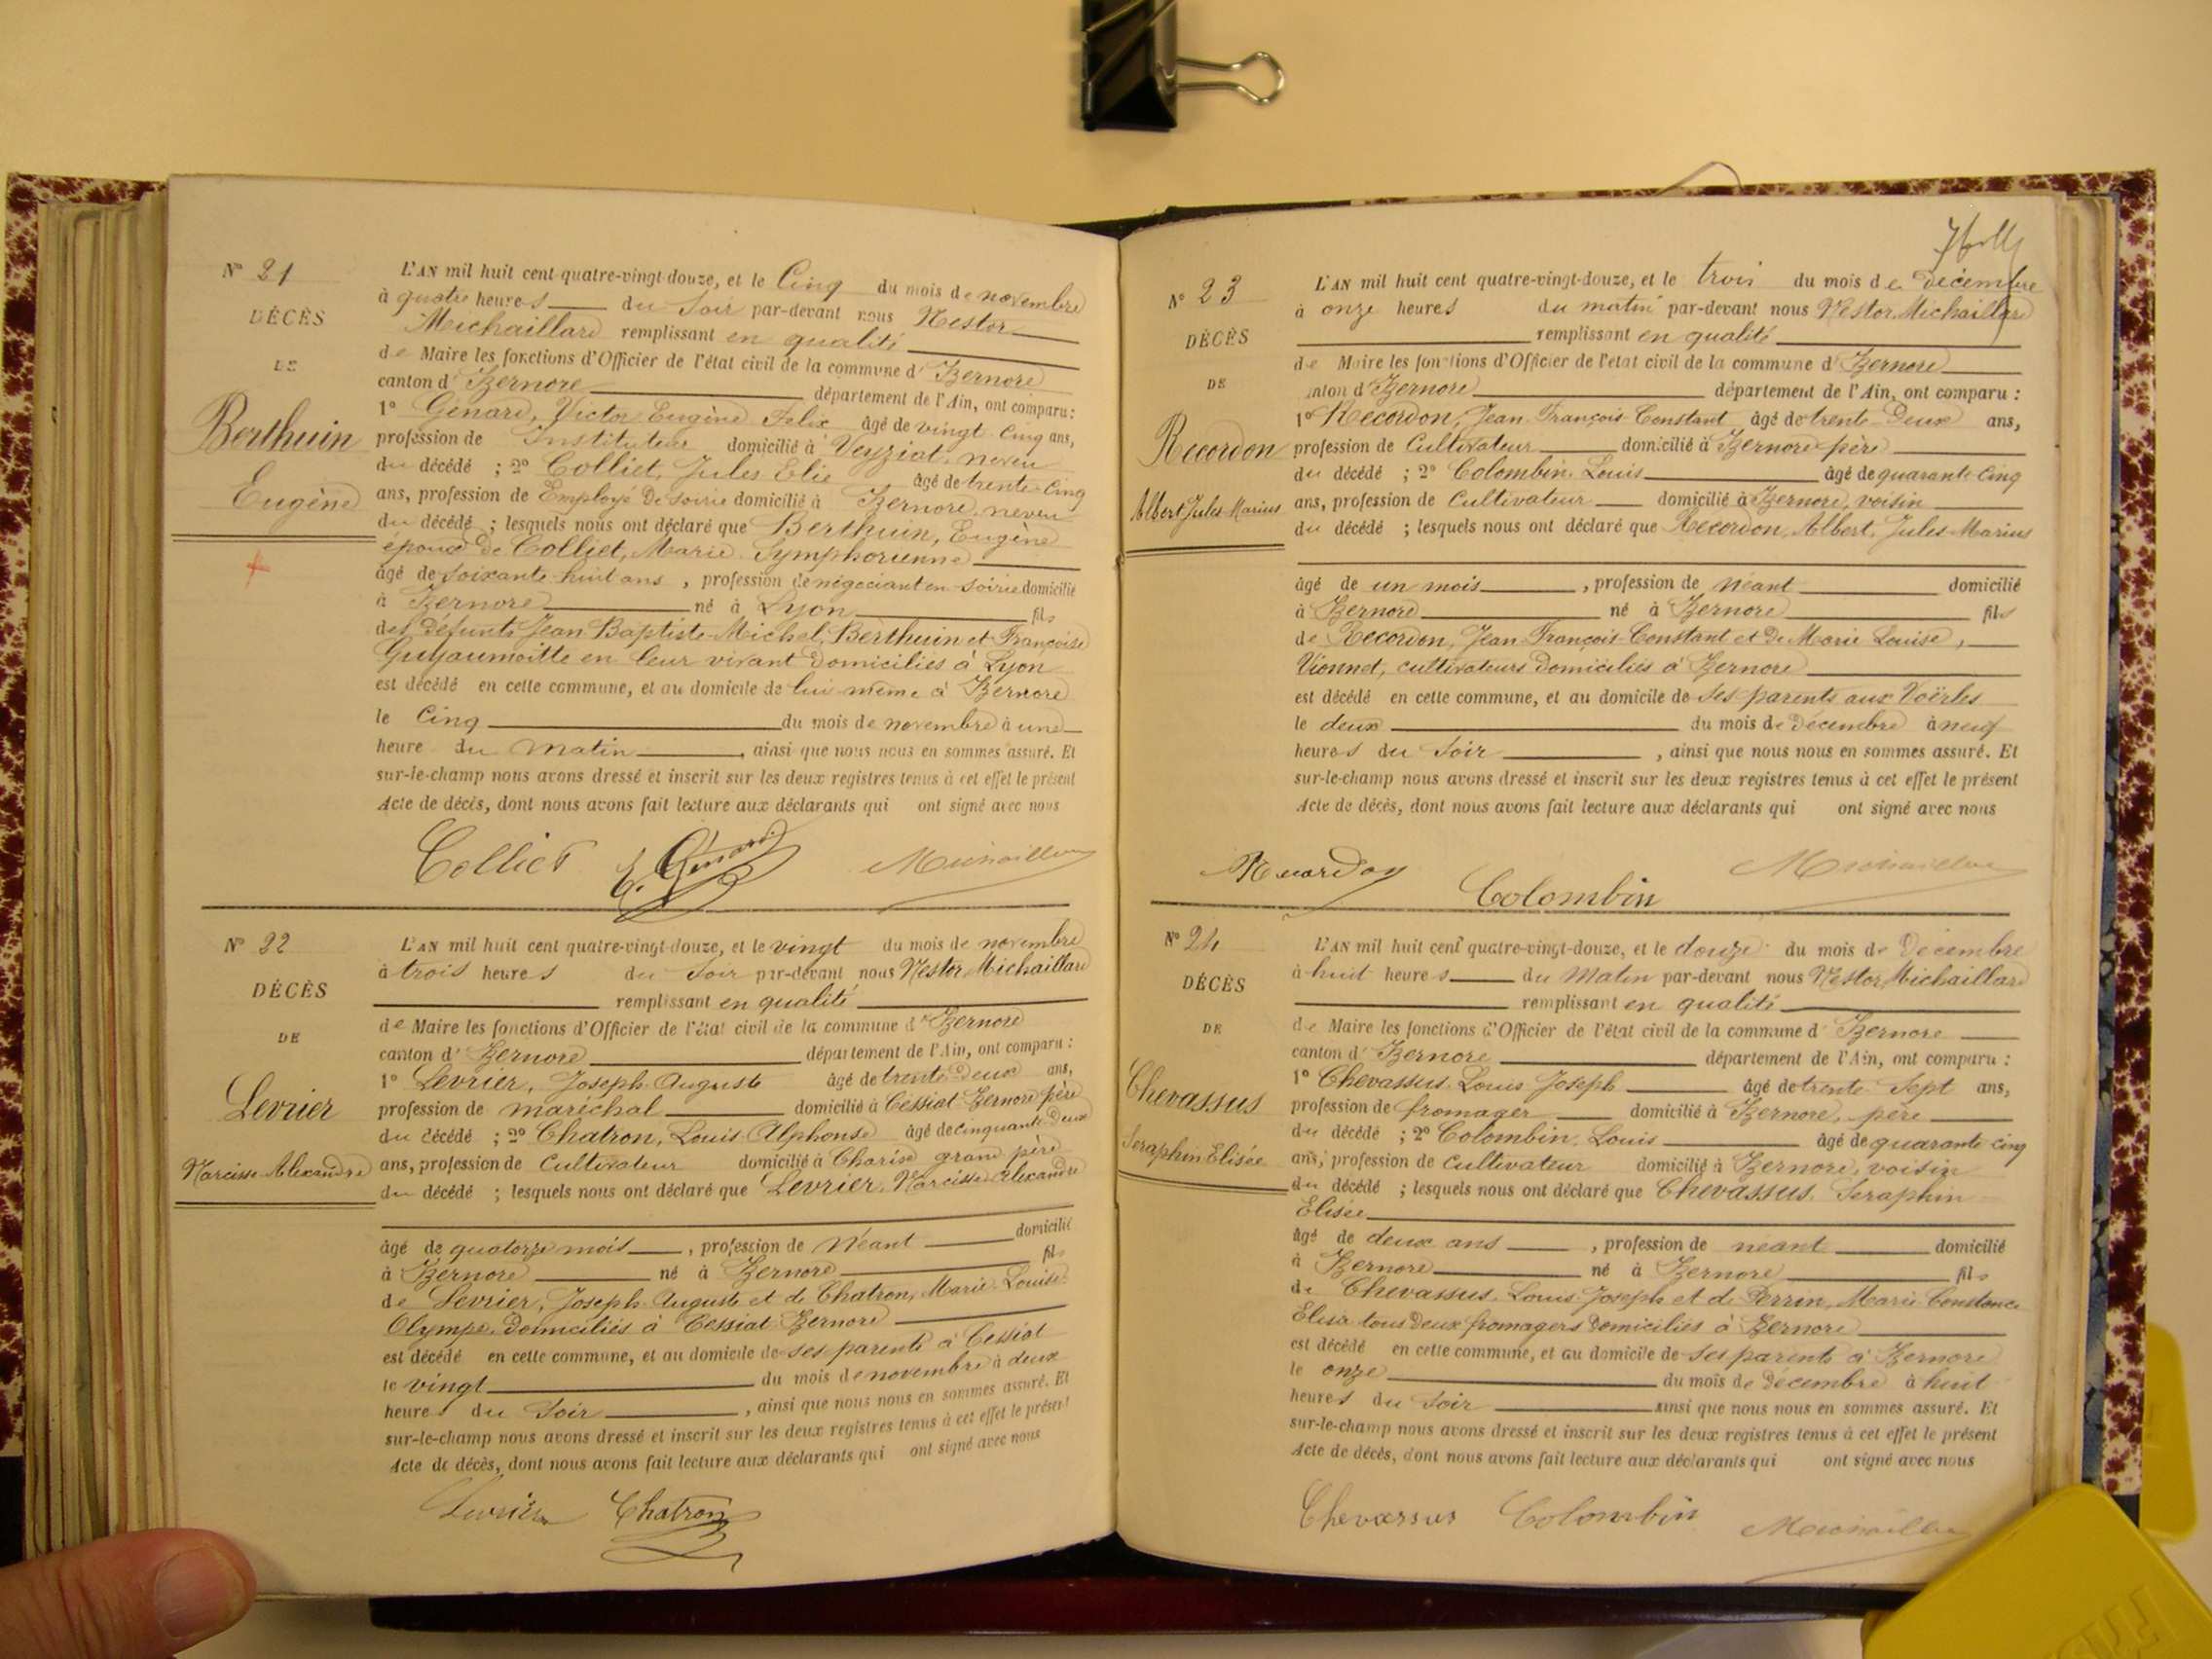 N° 21
DÉCÈS
DE
Berthuin
Eugène
L'AN mil huit cent quatre-vingt-douze, et le Cinq du mois de novembre
à quatre heures du Soir par-devant nous Nestor
Michaillard remplissant en qualité
de Maire les fonctions d'Officier de l'état civil de la commune d'Izernore
canton d'Izernore département de l'Ain, ont comparu :
1° Génard, Victor Eugène Felix âgé de vingt-cinq ans,
profession de Instituteur domicilié à Veyziat, neveu
du décédé ; 2° Colliet, Jules Elie âgé de trente-cinq
ans, profession de Employé de soirie domicilié à Izernore, neveu
du décédé ; lesquels nous ont déclaré que Berthuin, Eugène
époux de Colliet, Marie Symphorienne
âgé de soixante-huit ans, profession de négociant en soirie domicilié
à Izernore né à Lyon fils
des défunts Jean Baptiste Michel Berthuin et Françoise
Guyaumoitte en leur vivant domiciliés à Lyon
est décédé en cette commune, et au domicile de lui même à Izernore
le Cinq du mois de novembre à une
heure du matin, ainsi que nous nous en sommes assuré. Et
sur-le-champ nous avons dressé et inscrit sur les deux registres tenus à cet effet le présent
Acte de décès, dont nous avons fait lecture aux déclarants qui ont signé avec nous
Colliet E. Génard Michaillard
N° 22
DÉCÈS
DE
Levrier
Narcisse Alexandre
L'AN mil huit cent quatre-vingt-douze, et le vingt du mois de novembre
à trois heures du Soir par-devant nous Nestor Michaillard
remplissant en qualité
de Maire les fonctions d'Officier de l'état civil de la commune d'Izernore
canton d'Izernore département de l'Ain, ont comparu :
1° Levrier, Joseph Auguste âgé de trente deux ans,
profession de maréchal domicilié à Cessiat Izernore père
du décédé ; 2° Chatron, Louis Alphonse âgé de cinquante deux
ans, profession de Cultivateur domicilié à Charix grand père
du décédé ; lesquels nous ont déclaré que Levrier, Narcisse Alexandre
âgé de quatorze mois, profession de Néant domicilié
à Izernore né à Izernore fils
de Levrier, Joseph Auguste et de Chatron, Marie Louise
Olympe, domiciliés à Cessiat Izernore
est décédé en cette commune, et au domicile de ses parents à Cessiat
le vingt du mois de novembre à deux
heures du Soir, ainsi que nous nous en sommes assuré. Et
sur-le-champ nous avons dressé et inscrit sur les deux registres tenus à cet effet le présent
Acte de décès, dont nous avons fait lecture aux déclarants qui ont signé avec nous
Levrier Chatron
N° 23
DÉCÈS
DE
Recordon
Albert Jules Marius
L'AN mil huit cent quatre-vingt-douze, et le trois du mois de décembre
à onze heures du matin par-devant nous Nestor Michaillard
remplissant en qualité
de Maire les fonctions d'Officier de l'état civil de la commune d'Izernore
canton d'Izernore département de l'Ain, ont comparu :
1° Recordon, Jean François Constant âgé de trente-deux ans,
profession de Cultivateur domicilié à Izernore père
du décédé ; 2° Colombin, Louis âgé de quarante cinq
ans, profession de Cultivateur domicilié à Izernore, voisin
du décédé ; lesquels nous ont déclaré que Recordon, Albert, Jules Marius
âgé de un mois, profession de Néant domicilié
à Izernore né à Izernore fils
de Recordon, Jean François Constant et de Marie Louise,
Vionnet, cultivateurs domiciliés à Izernore
est décédé en cette commune, et au domicile de ses parents aux Voërles
le deux du mois de Décembre à neuf
heures du Soir, ainsi que nous nous en sommes assuré. Et
sur-le-champ nous avons dressé et inscrit sur les deux registres tenus à cet effet le présent
Acte de décès, dont nous avons fait lecture aux déclarants qui ont signé avec nous
Recordon Colombin Michaillard
N° 24
DÉCÈS
DE
Chevassus
Seraphin Elisée
L'AN mil huit cent quatre-vingt-douze, et le douze du mois de Décembre
à huit heures du Matin par-devant nous Nestor Michaillard
remplissant en qualité
de Maire les fonctions d'Officier de l'état civil de la commune d'Izernore
canton d'Izernore département de l'Ain, ont comparu :
1° Chevassus, Louis Joseph âgé de trente Sept ans,
profession de fromager domicilié à Izernore, père
du décédé ; 2° Colombin, Louis âgé de quarante cinq
ans, profession de Cultivateur domicilié à Izernore, voisin
du décédé ; lesquels nous ont déclaré que Chevassus, Seraphin
Elisée
âgé de deux ans, profession de néant domicilié
à Izernore né à Izernore fils
de Chevassus, Louis Joseph et de Perrin, Marie Constance
Elisa tous deux fromagers domiciliés à Izernore
est décédé en cette commune, et au domicile de ses parents à Izernore
le onze du mois de Décembre à huit
heures du Soir ainsi que nous nous en sommes assuré. Et
sur-le-champ nous avons dressé et inscrit sur les deux registres tenus à cet effet le présent
Acte de décès, dont nous avons fait lecture aux déclarants qui ont signé avec nous
Chevassus Colombin Michaillard